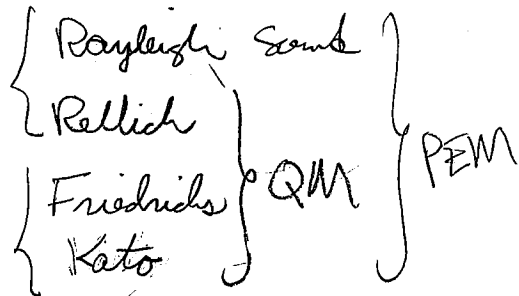 Rayleigh Sound
Rellich
Friedrichs QM
Kato
PEM